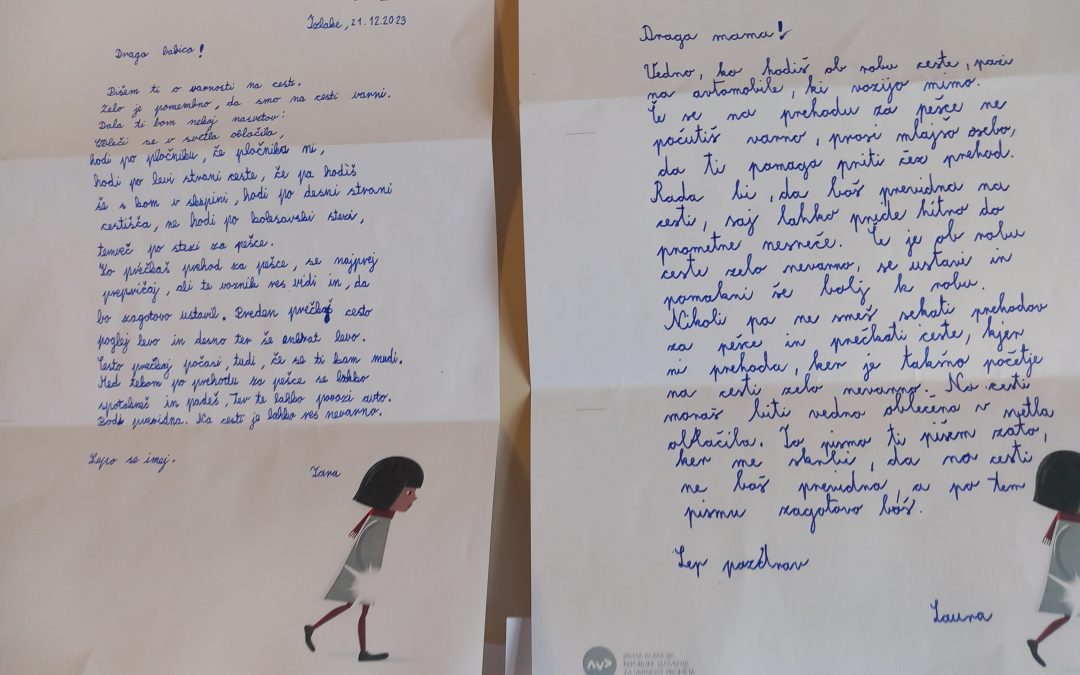 Izlake, 21.12.2023
Draga babica!
Pišem ti o varnosti na cesti.
Zelo je pomembno, da smo na cesti varni.
Dala ti bom nekaj nasvetov:
Obleči se v svetla oblačila,
hodi po pločniku, če pločnika ni,
hodi po levi strani ceste, če pa hodiš
še s kom v skupini, hodi po desni strani
cestišča, ne hodi po kolesarski stezi,
temveč po stezi za pešce.
Ko prečkaš prehod za pešce, se najprej
prepričaj, ali te voznik res vidi in, da
bo zagotovo ustavil. Preden prečkaš cesto
poglej levo in desno ter še enkrat levo.
Cesto prečkaj počasi, tudi, če se ti kam mudi.
Med tekom po prehodu za pešce se lahko
spotakneš in padeš, ter te lahko povozi avto.
Bodi previdna. Na cesti je lahko res nevarno.
Lepo se imej.
Zara
Draga mama!
Vedno, ko hodiš ob robu ceste, pazi
na avtomobile, ki vozijo mimo.
Če se na prehodu za pešce ne
počutiš varno, prosi mlajšo osebo,
da ti pomaga priti čez prehod.
Rada bi, da boš previdna na
cesti, saj lahko pride hitro do
prometne nesreče. Če je ob robu
ceste zelo nevarno, se ustavi in
pomakni še bolj k robu.
Nikoli pa ne smeš sekati prehodov
za pešce in prečkati ceste, kjer
ni prehoda, ker je takšno početje
na cesti zelo nevarno. Na cesti
moraš biti vedno oblečena v svetla
oblačila. To pismo ti pišem zato,
ker me skrbi, da na cesti
ne boš previdna, a po tem
pismu zagotovo boš.
Lep pozdrav
Laura
AVP JAVNA AGENCIJA
REPUBLIKE SLOVENIJE
ZA VARNOST PROMETA